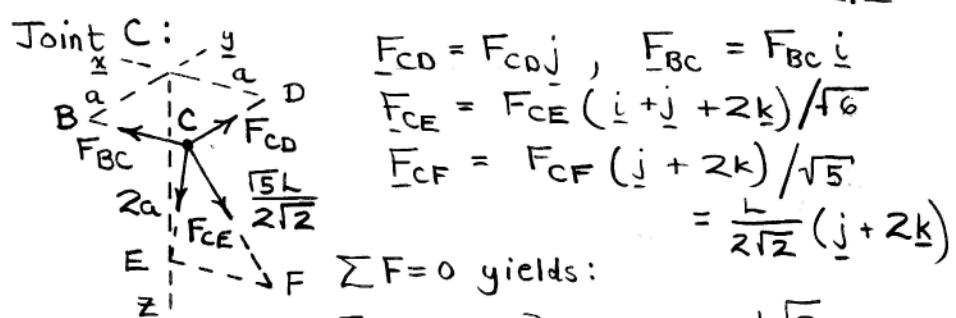 Joint C:
x y
a a
B C D
F_BC F_CD
2a √5L/2√2
F_CE
E F
z
F_CD = F_CD j , F_BC = F_BC i
F_CE = F_CE (i + j + 2k)/√6
F_CF = F_CF (j + 2k)/√5
= L/2√2 (j + 2k)
ΣF=0 yields: